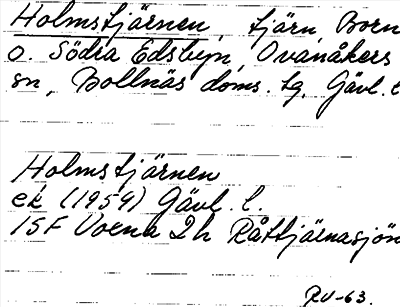 Holmstjärnen, tjärn, Born
o. Södra Edsbyn, Ovanåkers
sn, Bollnäs doms. tg, Gävl. l
Holmstjärnen
ek (1959) Gävl. l.
15F Voxna 2h Råttjärnasjön
RU-63.